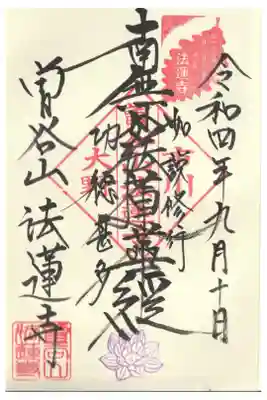 法蓮寺
令和四年九月十日
如説修行
市川
南無妙法蓮華経
功徳甚多
大野
曽谷山 法蓮寺